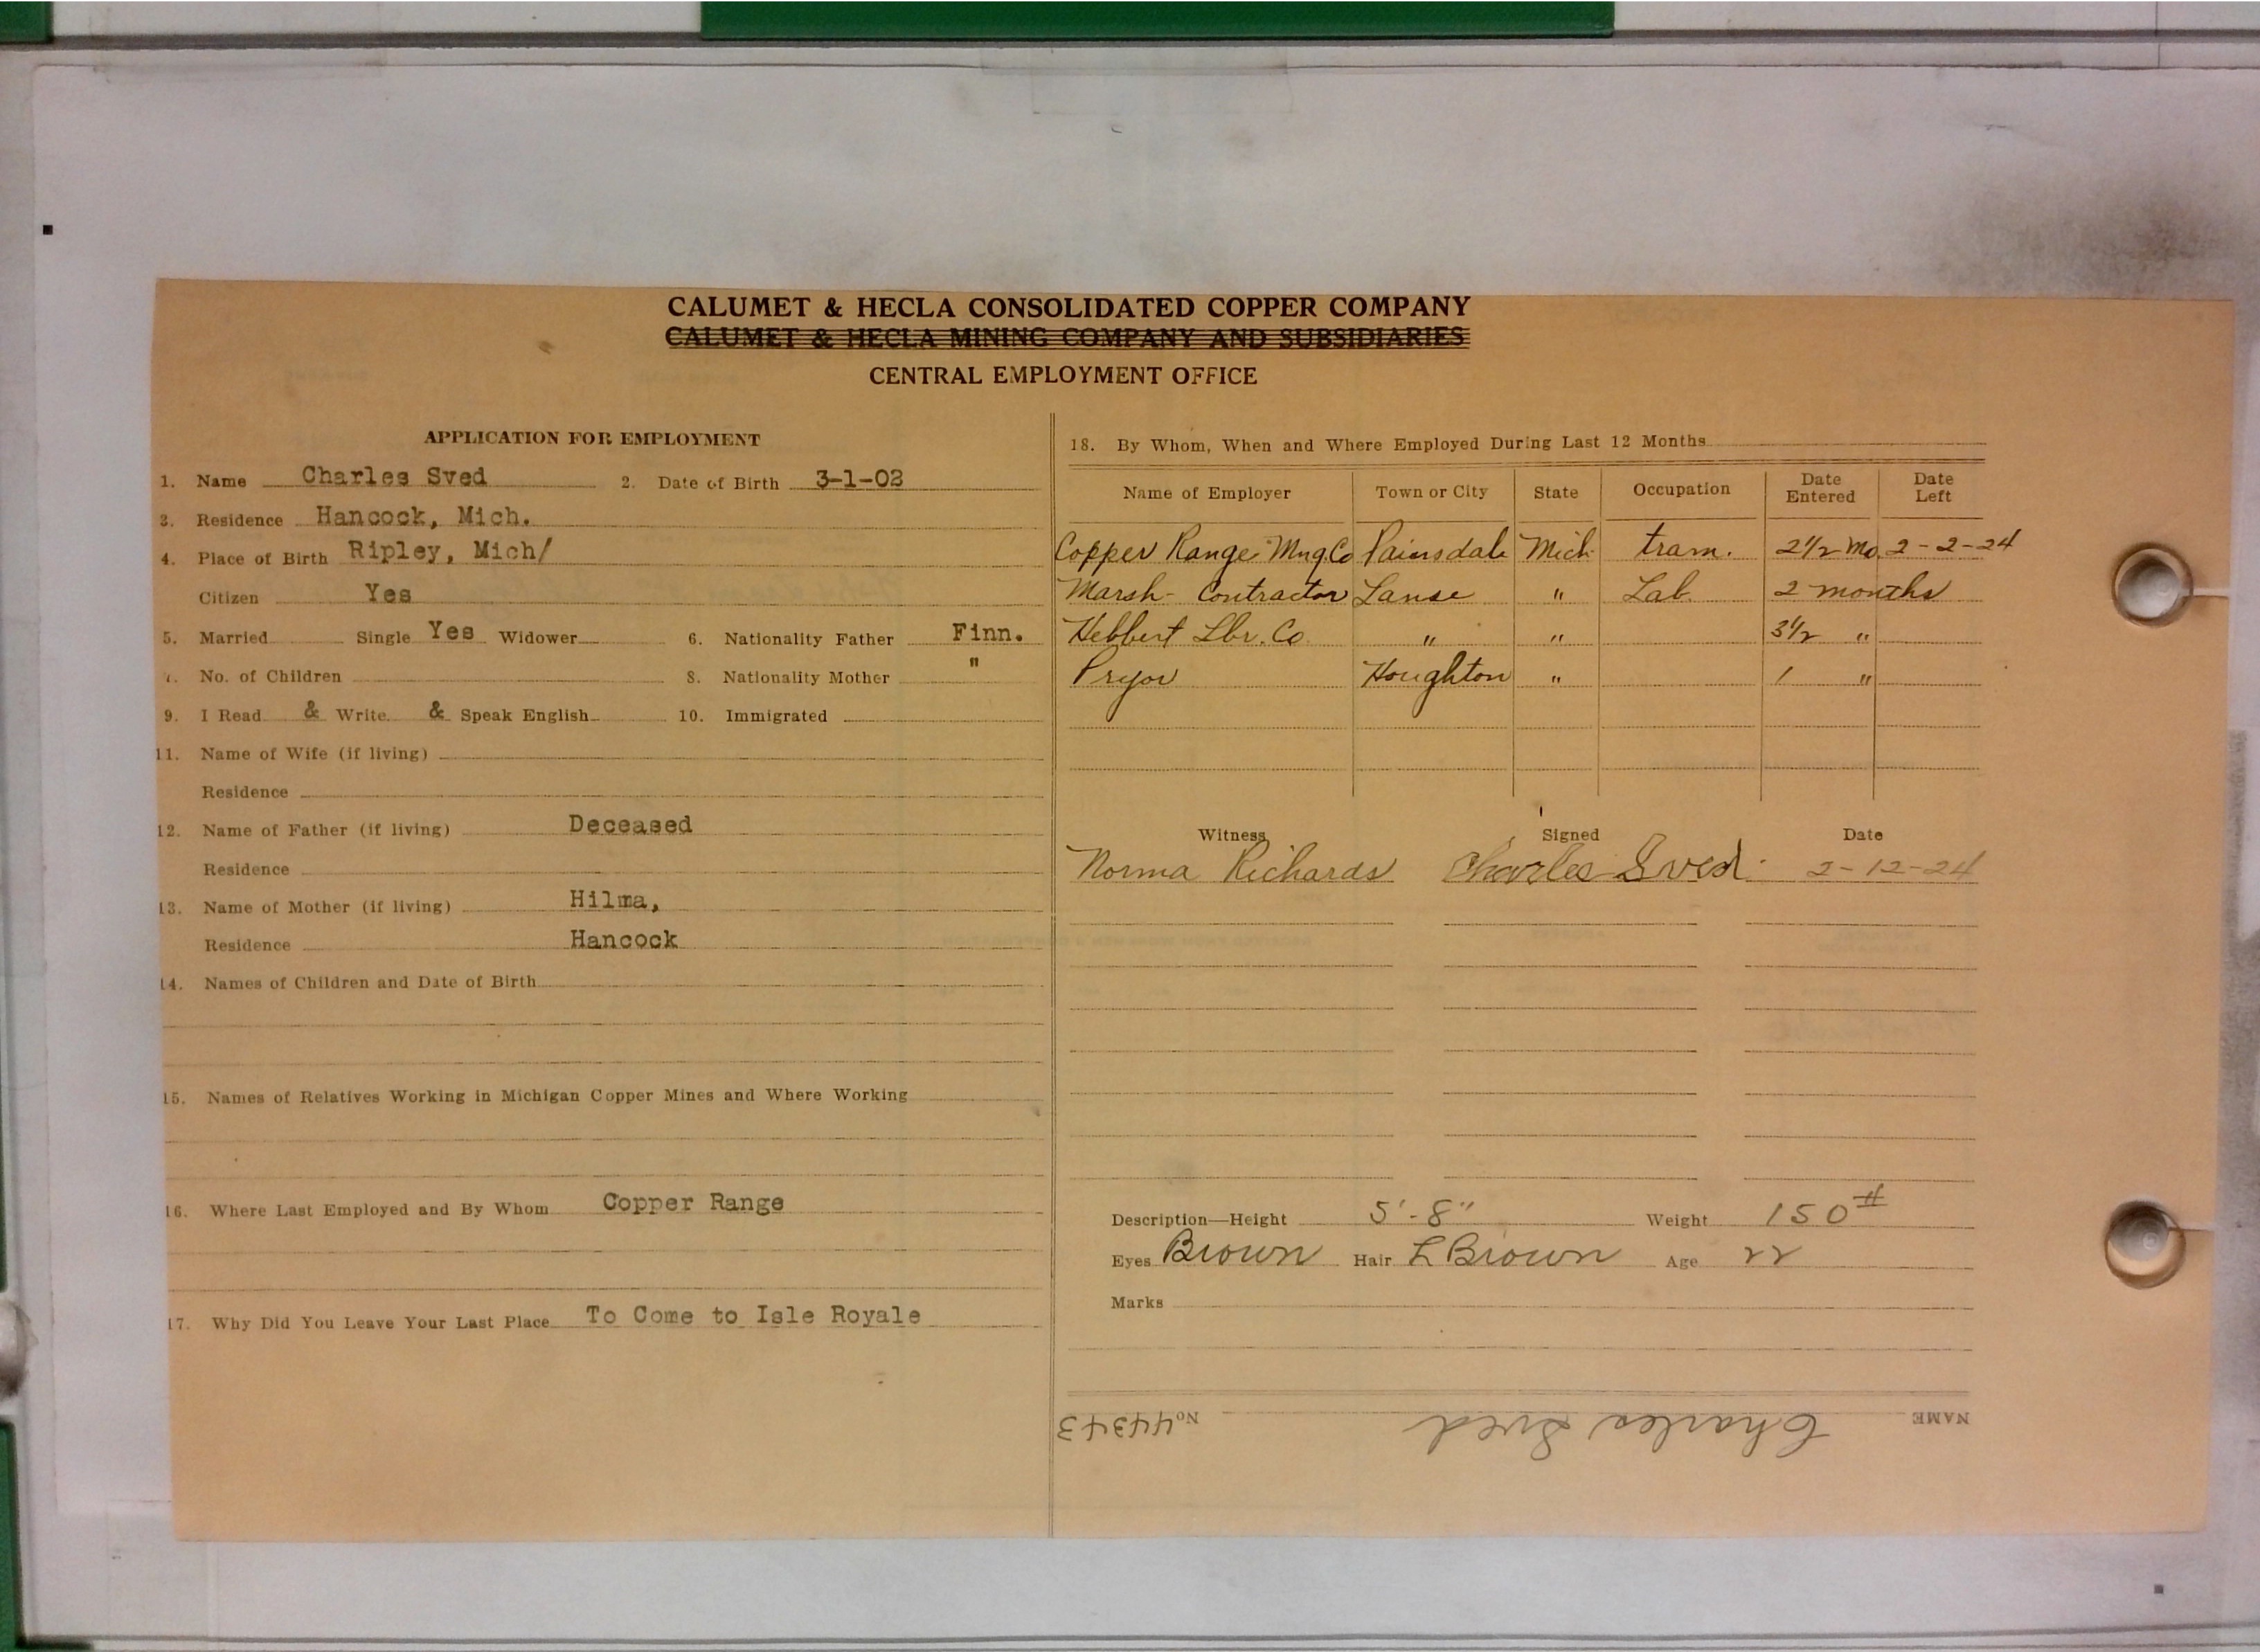 CALUMET & HECLA CONSOLIDATED COPPER COMPANY
CALUMET & HECLA MINING COMPANY AND SUBSIDIARIES
CENTRAL EMPLOYMENT OFFICE
APPLICATION FOR EMPLOYMENT
1. Name Charles Sved 2. Date of Birth 3-1-02
3. Residence Hancock, Mich.
4. Place of Birth Ripley, Mich/
Citizen Yes
5. Married Single Yes Widower 6. Nationality Father Finn.
7. No. of Children 8. Nationality Mother "
9. I Read & Write & Speak English 10. Immigrated
11. Name of Wife (if living)
Residence
12. Name of Father (if living) Deceased
Residence
13. Name of Mother (if living) Hilma,
Residence Hancock
14. Names of Children and Date of Birth
15. Names of Relatives Working in Michigan Copper Mines and Where Working
16. Where Last Employed and By Whom Copper Range
17. Why Did You Leave Your Last Place To Come to Isle Royale
18. By Whom, When and Where Employed During Last 12 Months
Name of Employer Town or City State Occupation Date Entered Date Left
Copper Range Mng. Co Painsdale Mich. tram. 2 1/2 mo. 2-2-24
Marsh - Contractor Lanse " Lab. 2 months
Hebbert Lbr. Co. " " 3 1/2 "
Pryor Houghton " 1 "
Witness Signed Date
Norma Richards Charles Sved 2-12-24
Description—Height 5'-8" Weight 150 #
Eyes Brown Hair L Brown Age 22
Marks
NAME Charles Sved No 44343